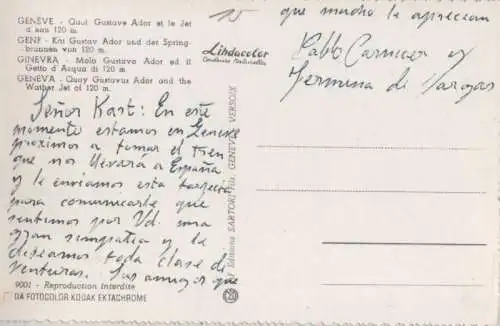 GENÈVE - Quai Gustave Ador et le Jet
d'eau 120 m
GENF - Kai Gustav Ador und der Spring-
brunnen von 120 m.
GINEVRA - Molo Gustave Ador ed il
Getto d'Acqua di 120 m
GENEVA - Quay Gustavus Ador and the
Wather Jet of 120 m.
Señor Kast: En este
momento estamos en Geneve
proximos a tomar el tren
que nos llevará a España
y le enviamos esta tarjeta
para comunicarle que
sentimos por Vd. una
gran simpatia y le
deseamos toda clase de
venturas. Sus amigos que
9001 - Reproduction Interdite
DA FOTOCOLOR KODAK EKTACHROME
15
Lindacolor
que mucho le aprecian
Pablo y
de Vargas
Editions SARTORI Fils, GENÈVE - VERSOIX